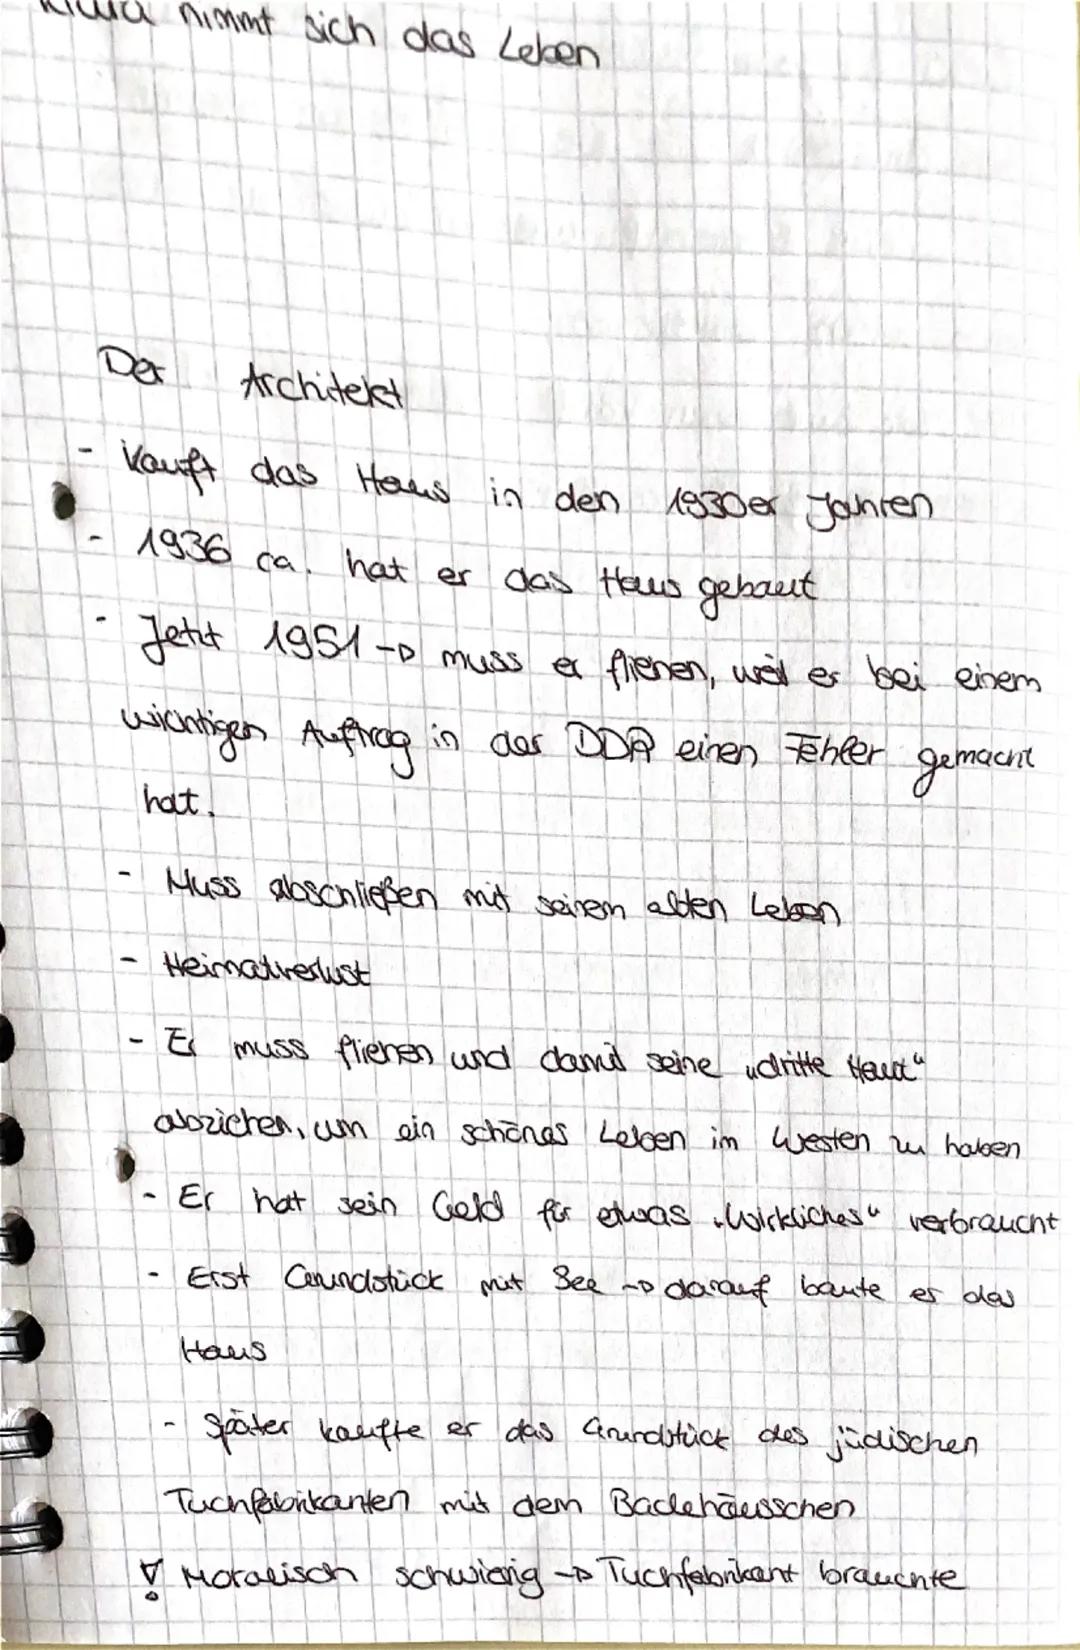 nimmt sich das Leben
Der Architekt
- kauft das Haus in den 1930er Jahren
- 1936 ca. hat er das Haus gebaut
- Jetzt 1951 → muss er fliehen, weil er bei einem
wichtigen Auftrag in der DDR einen Fehler gemacht
hat.
- Muss abschließen mit seinem alten Leben
- Heimatverlust
- Er muss fliehen und damit seine „dritte Haut“
abziehen, um ein schönes Leben im Westen zu haben
- Er hat sein Geld für etwas „Wirkliches“ verbraucht
- Erst Grundstück mit See → darauf baute er das
Haus
- Später kaufte er das Grundstück des jüdischen
Tuchfabrikanten mit dem Badehäusschen
! Moralisch schwierig → Tuchfabrikant brauchte